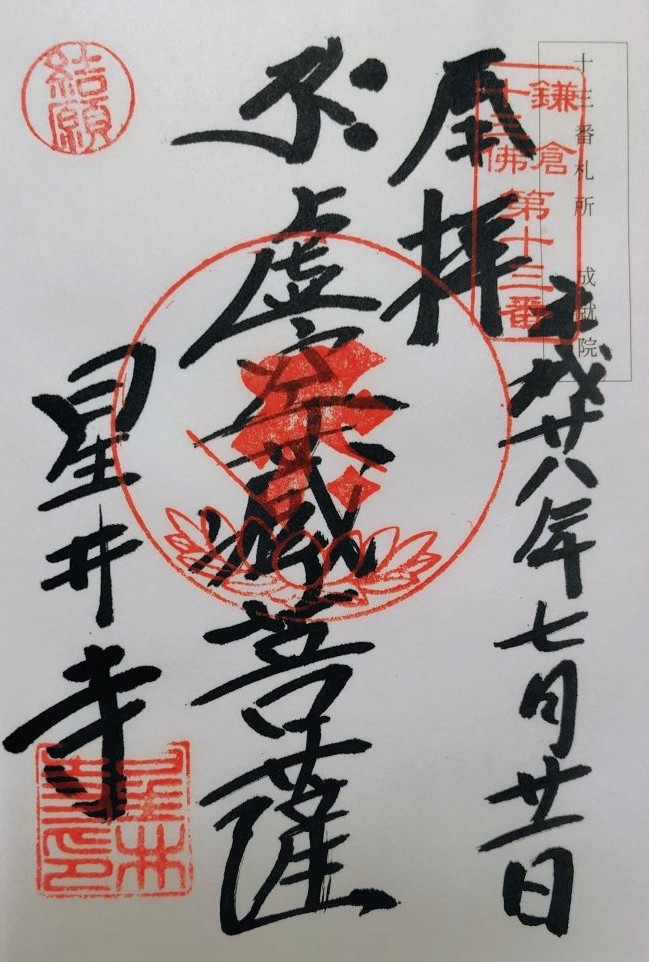 十三番札所 成就院
鎌倉
十三佛
第十三番
奉拝
平成廿八年七月廿一日
虚空蔵菩薩
結願
星井寺
星井
寺印